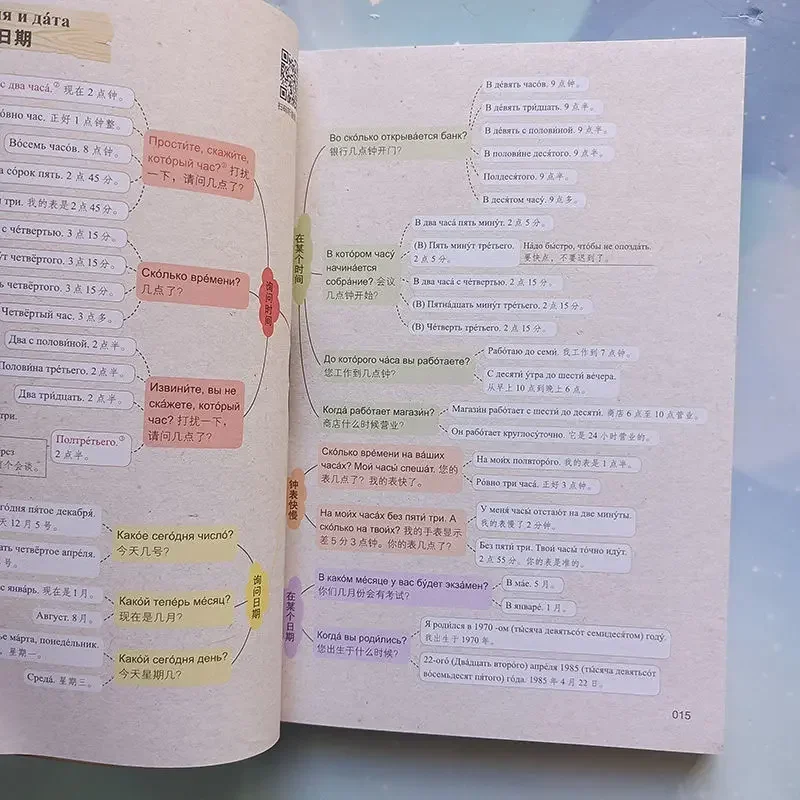 я и да́та
日期
с два часа́.② 现在 2 点钟。
о́вно час. 正好 1 点钟整。
Во́семь часо́в. 8 点钟。
а со́рок пять. 2 点 45 分。
три. 我的表是 2 点45 分。
Прости́те, скажи́те,
кото́рый час?① 打扰
一下，请问几点了？
с че́твертью. 3 点 15 分。
четвёртого. 3 点 15 分。
ь четвёртого. 3 点 15 分。
Четвёртый час. 3 点多。
Ско́лько вре́мени?
几点了？
Два с полови́ной. 2 点半。
Полови́на тре́тьего. 2 点半。
Два три́дцать. 2 点半。
Извини́те, вы не
ска́жете, кото́рый
час? 打扰一下，
请问几点了？
три.
рез
个会谈。
Полтре́тьего.③
2 点半。
询问时间
го́дня пя́тое декабря́.
天 12 月 5 号。
ать четвёртое апре́ля.
号。
Како́е сего́дня число́?
今天几号？
с янва́рь. 现在是 1 月。
А́вгуст. 8 月。
Како́й тепе́рь ме́сяц?
现在是几月？
ье ма́рта, понеде́льник.
星期一。
Среда́. 星期三。
Како́й сего́дня день?
今天星期几？
询问日期
在某个时间
Во ско́лько открыва́ется банк?
银行几点钟开门？
В де́вять часо́в. 9 点钟。
В де́вять три́дцать. 9 点半。
В де́вять с полови́ной. 9 点半。
В полови́не деся́того. 9 点半。
Полдеся́того. 9 点半。
В деся́том часу́. 9 点多。
В кото́ром часу́
начина́ется
собра́ние? 会议
几点钟开始？
В два часа́ пять мину́т. 2 点 5 分。
(В) Пять мину́т тре́тьего.
2 点 5 分。
На́до бы́стро, что́бы не опозда́ть.
要快点，不要迟到了。
В два часа́ с че́твертью. 2 点 15 分。
(В) Пятна́дцать мину́т тре́тьего. 2 点 15 分。
(В) Че́тверть тре́тьего. 2 点 15 分。
До кото́рого ча́са вы рабо́таете?
您工作到几点钟？
Рабо́таю до семи́. 我工作到 7 点钟。
С десяти́ утра́ до шести́ ве́чера.
从早上 10 点到晚上 6 点。
Когда́ рабо́тает магази́н?
商店什么时候营业？
Магази́н рабо́тает с шести́ до десяти́. 商店 6 点至 10 点营业。
Он рабо́тает круглосу́точно. 它是 24 小时营业的。
钟表快慢
Ско́лько вре́мени на ва́ших
часа́х? Мои́ часы́ спеша́т. 您的
表几点了？我的表快了。
На мои́х полвторо́го. 我的表是 1 点半。
Ро́вно три часа́. 正好 3 点钟。
На мои́х часа́х без пяти́ три. А
ско́лько на твои́х? 我的手表显示
差 5 分 3 点钟。你的表几点了？
У меня́ часы́ отстаю́т на две мину́ты.
我的表慢了 2 分钟。
Без пяти́ три. Твои́ часы́ то́чно иду́т.
2 点 55 分。你的表是准的。
在某个日期
В како́м ме́сяце у вас бу́дет экза́мен?
你们几月份会有考试？
В ма́е. 5 月。
В январе́. 1 月。
Когда́ вы родили́сь?
您出生于什么时候？
Я роди́лся в 1970 -ом (ты́сяча девятьсо́т семидеся́том) году́.
我出生于 1970 年。
22-ого́ (Два́дцать второ́го) апре́ля 1985 (ты́сяча девятьсо́т
во́семьдесят пя́того) го́да. 1985 年 4 月 22 日。
015